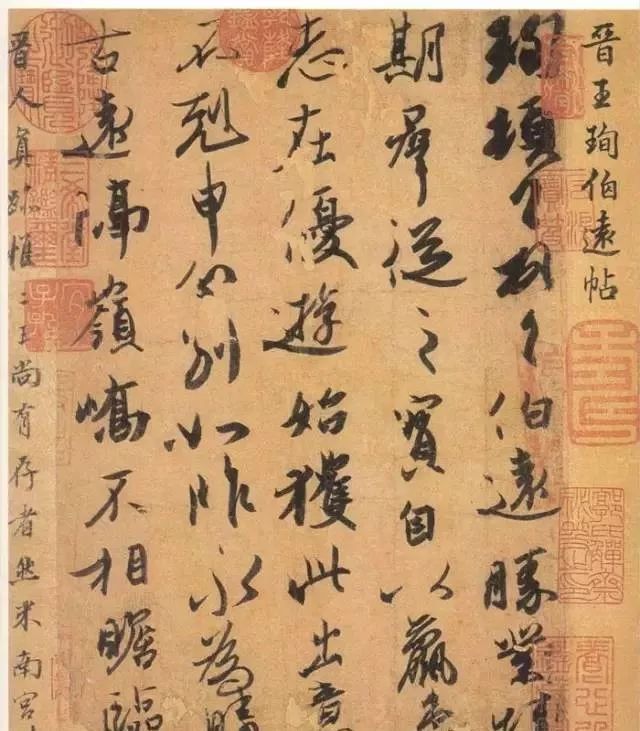 晉王珣伯遠帖
珣頓首頓首伯遠勝業情
期羣從之寶自以羸患
志在優遊始獲此出意
不剋申分別如昨永為疇
古遠隔嶺嶠不相瞻臨
晉人真跡惟二王尚有存者然米南宮